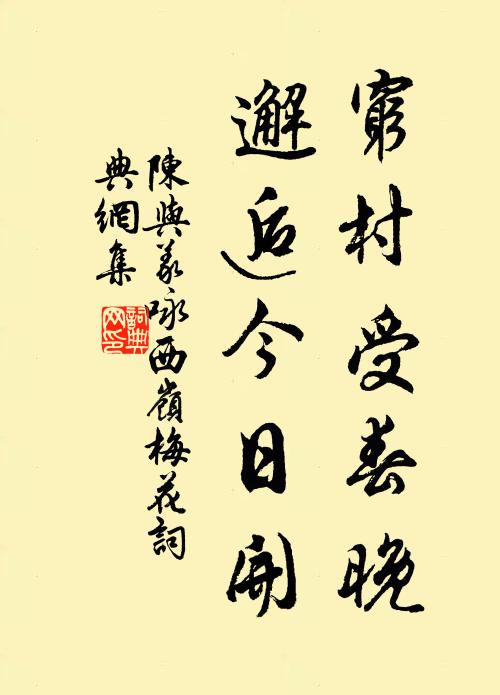 窮村受春晚
邂逅今日開
陳與義咏西嶺梅花詞
典網集
詞典
网印